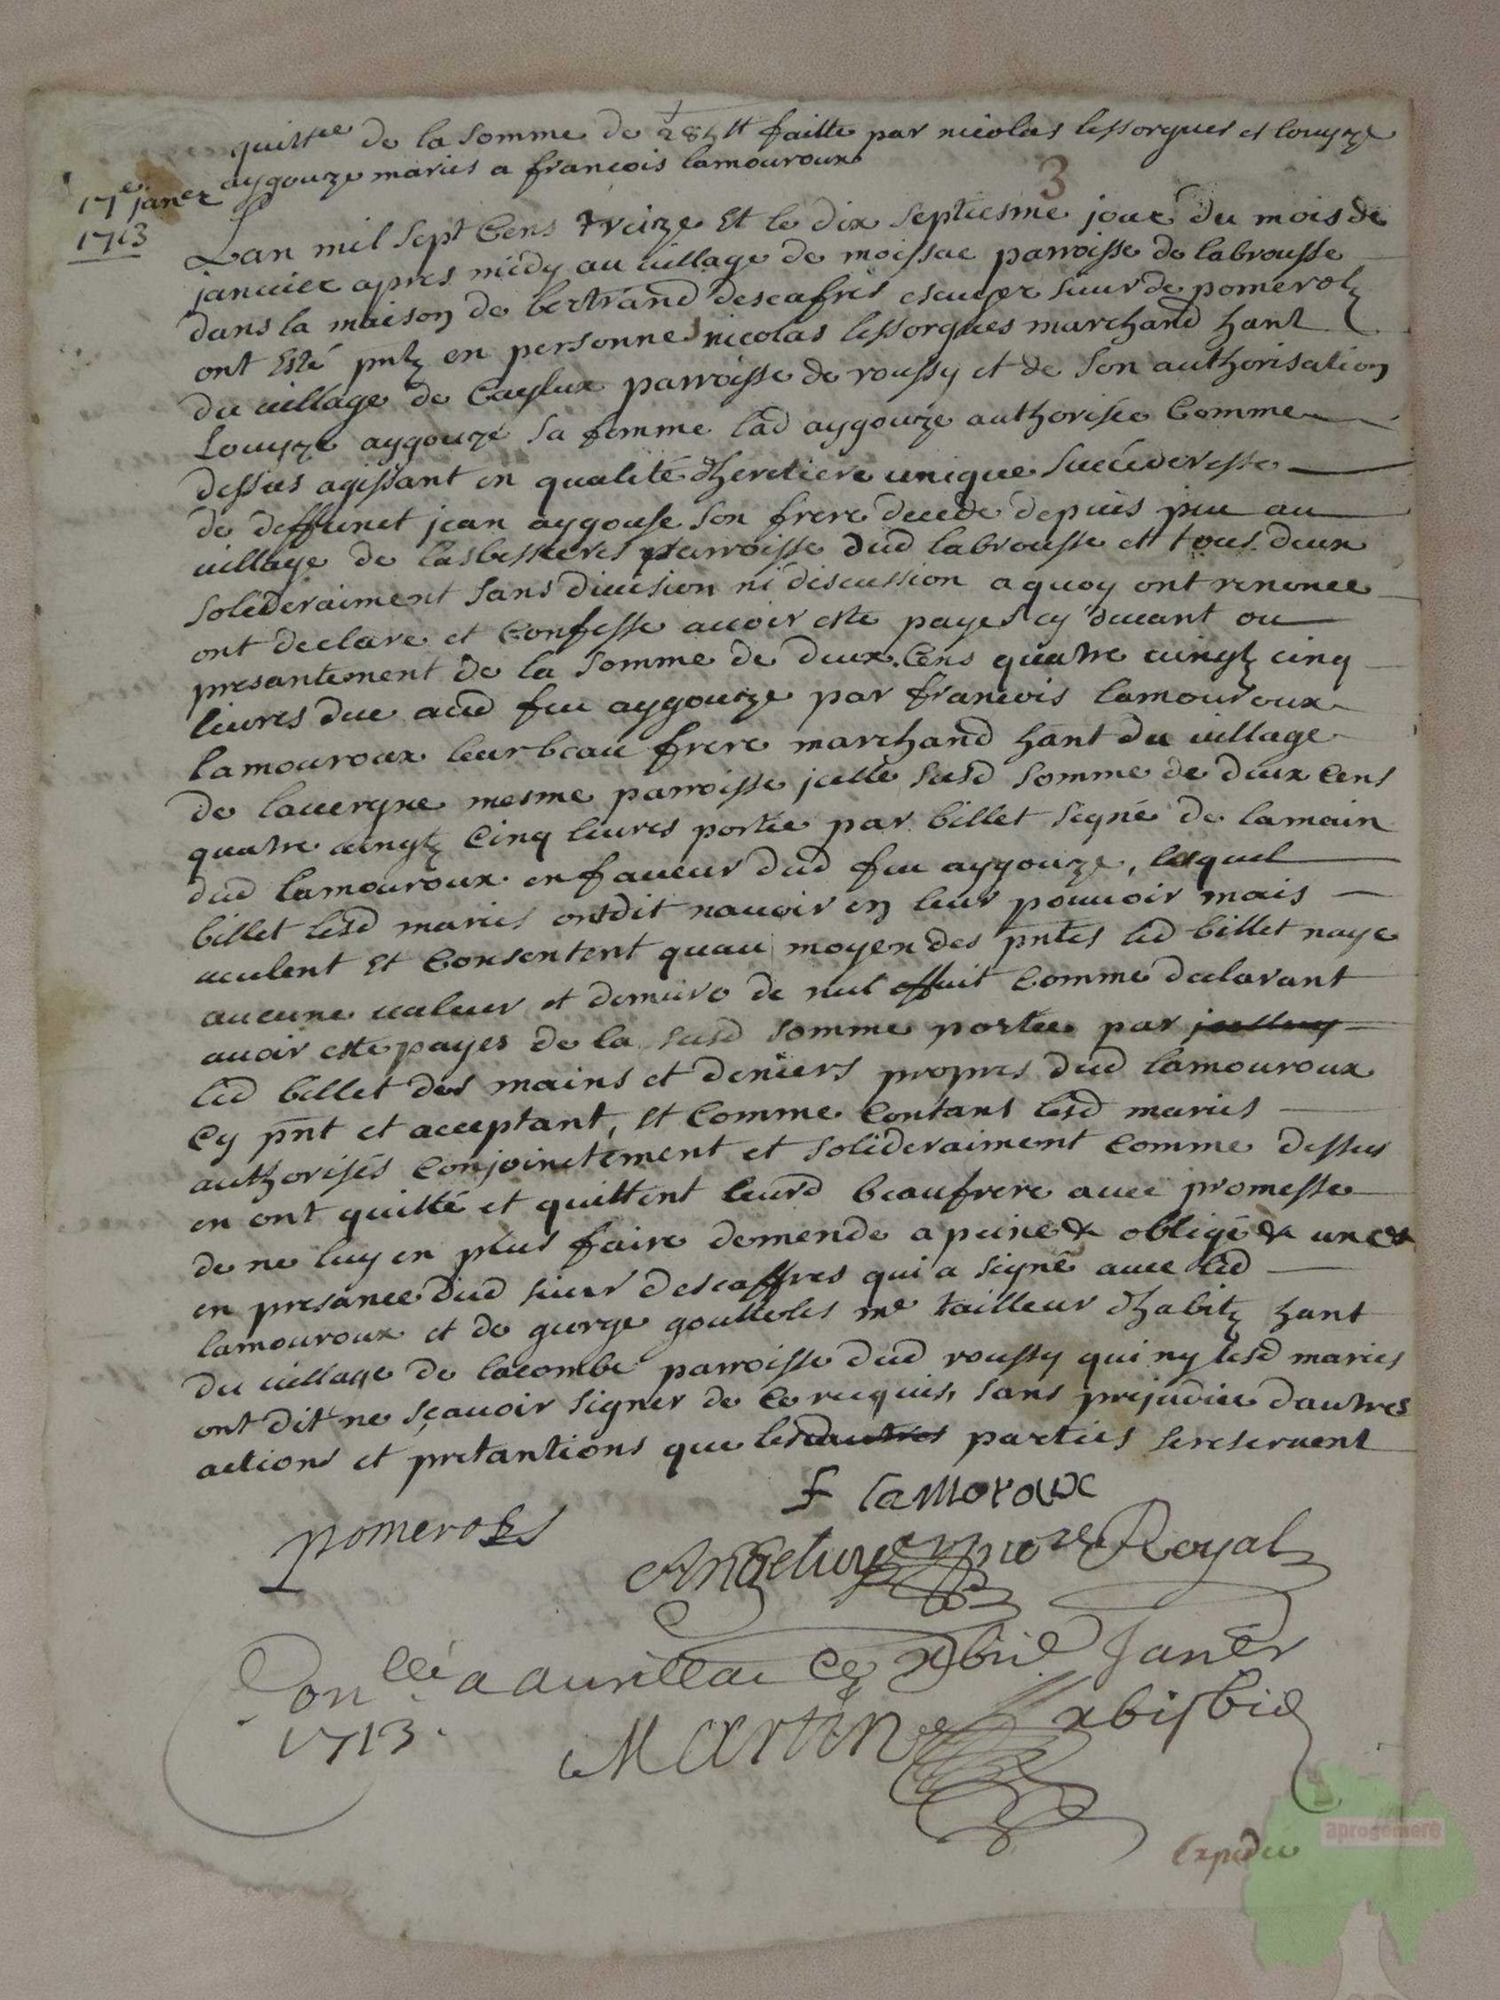 quittce de la somme de 285 ₶ faitte par nicolas lessorgues et louyze
aygouze maries a francois lamouroux
3
17e janer
1713
Lan mil sept cens treize et le dix septiesme jour du mois de
janvier apres midy au village de moissac parroisse de labrousse
dans la maison de bertrand descafres escuyer sieur de pomerolz
ont esté pntz en personnes nicolas lessorgues marchand hant
du village de Caylux parroisse de roussy et de son authorisation
Louyze aygouze sa femme lad aygouze authorisée comme
dessus agissant en qualité dheretiere unique succederesse
de deffunct jean aygouse son frere decede depuis peu au
village de lasbesseres parroisse dud labrousse et tous deux
soliderairement sans division ni discussion a quoy ont renonce
ont declare et confesse avoir este payes cy devant ou
presantement de la somme de deux cens quatre vingtz cinq
livres due aud feu aygouze par francois lamouroux
lamouroux leur beau frere marchand hant du village
de lavergne mesme parroisse jcelle susd somme de deux cens
quatre vingtz cinq livres portée par billet signé de lamain
dud lamouroux en faveur dud feu aygouze, lequel
billet lesd maries ont dit navoir en leur pouvoir mais
veulent et consentent quau moyen des pntes led billet naye
aucune valeur et demure de nul effait comme declarant
avoir este payes de la susd somme portée par
led billet des mains et deniers propres dud lamouroux
cy pnt et acceptant, et comme contans lesd maries
authorisés conjoinctement et soliderairement comme dessus
en ont quitté et quittent leurd beaufrere avec promesse
de ne luy en plus faire demende a peine & obligé & unc &
en presance dud sieur descaffres qui a signé avec led
lamouroux et de george goutteles me tailleur dhabitz hant
du village de lacombe parroisse dud roussy qui ny lesd maries
ont dit ne sçavoir signer de ce requis, sans prejudice dautres
actions et pretantions que lesd parties sereservent
f lamoroux
Pomerols
nore Royal
Conllé a aurillac ce Janer
1713.
Martin
Expedié
aprogemere